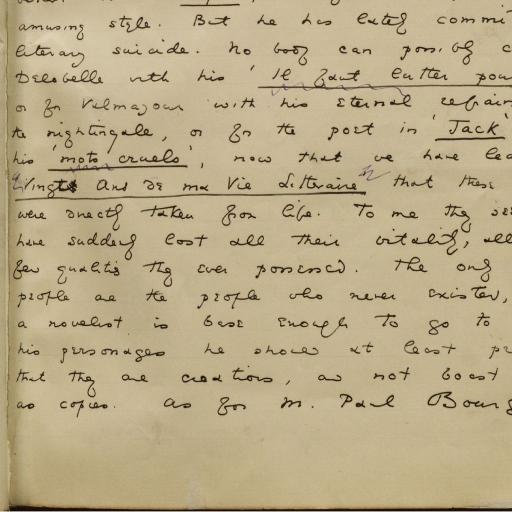 amusing style. But he has lately commi
literary suicide. No body can possibly c
Delobelle with his 'Il faut lutter pou
or for Valmajour with his eternal refrain
the nightingale, or for the poet in 'Jack'
his 'mots cruels', now that we have lea
Vingt Ans de ma Vie Littéraire that these
were directly taken from life. To me they see
have suddenly lost all their vitality, all
few qualities they ever possessed. The only
people are the people who never existed,
a novelist is base enough to go to
his personages he should at least pr
that they are creations, and not boast
as copies. As for M. Paul Bourg